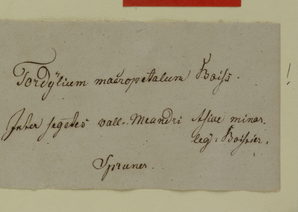 Tordylium macropetalum Boiss.
!
Inter segetes vall. Meandri Asiae minor.
leg: Boissier.
Spruner